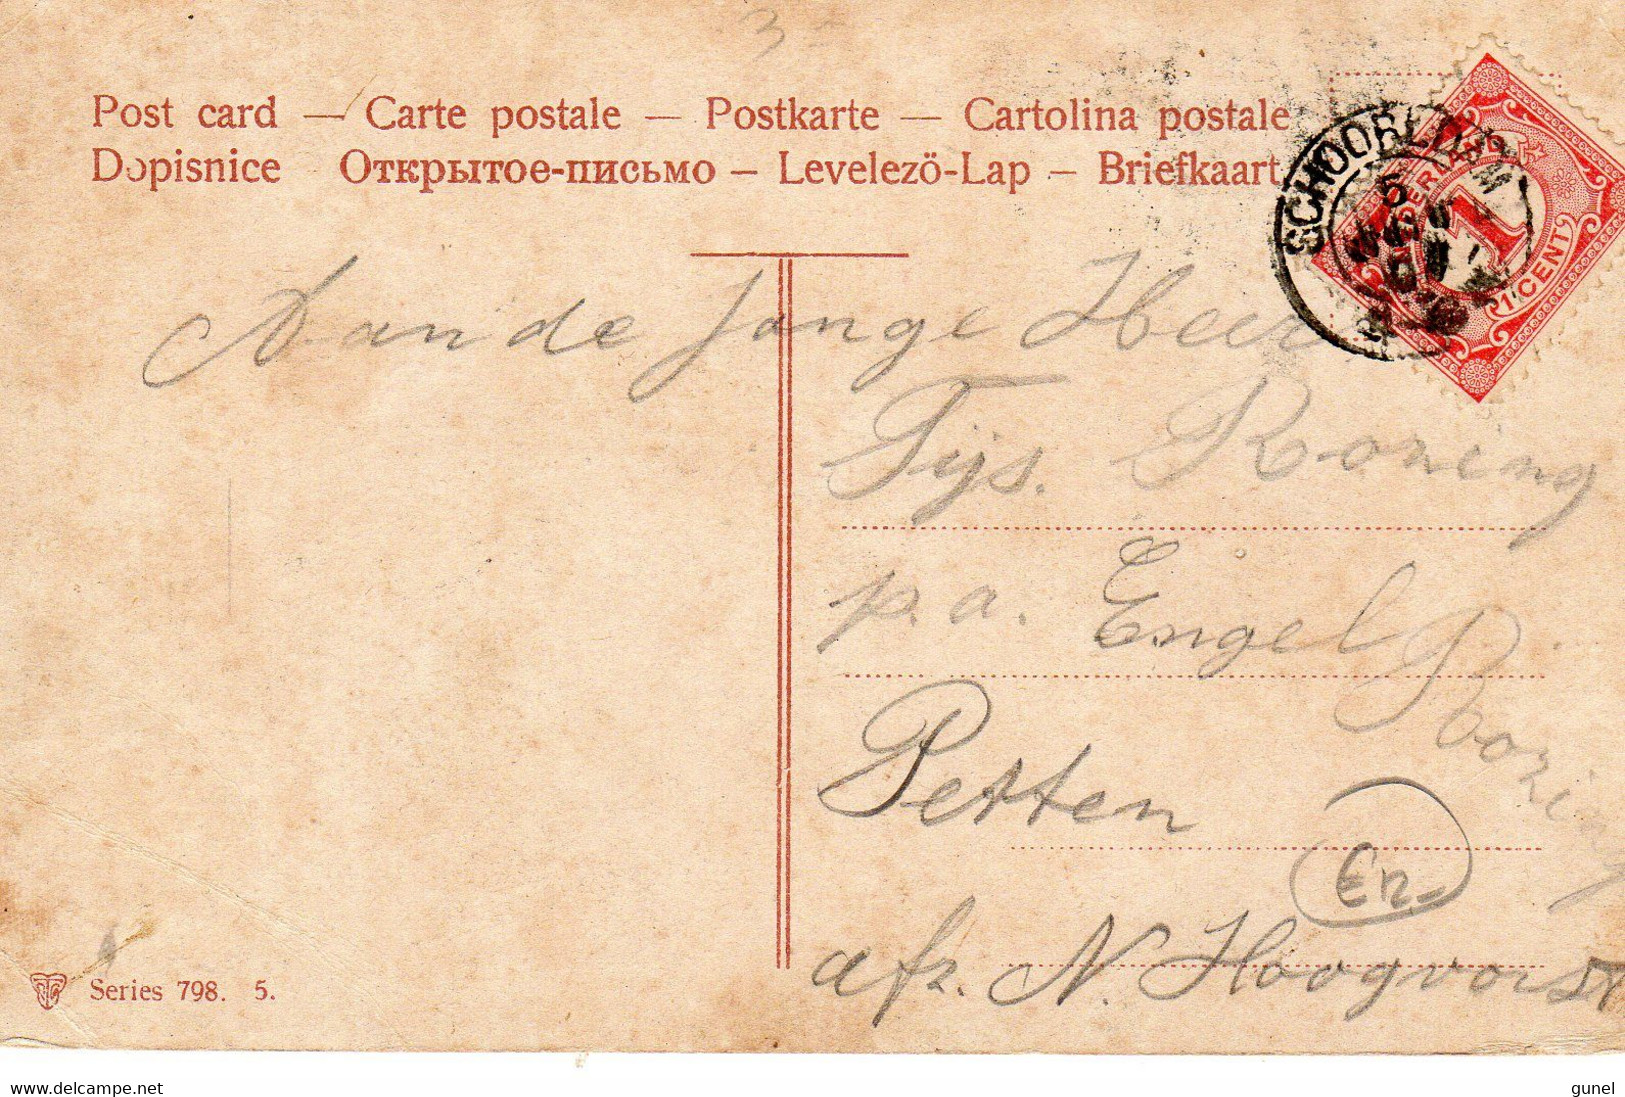 3 -
Post card — Carte postale — Postkarte — Cartolina postale
Dopisnice Открытое-письмо – Levelező-Lap – Briefkaart
SCHOORLDAM
5
NEDERLAND
1
1 CENT
Aan de Jonge Heer
Tijs. Koning
p. a. Engel Koning
Petten
En
afz. N. Hoogvorst
Series 798. 5.
delcampe.net
gunel